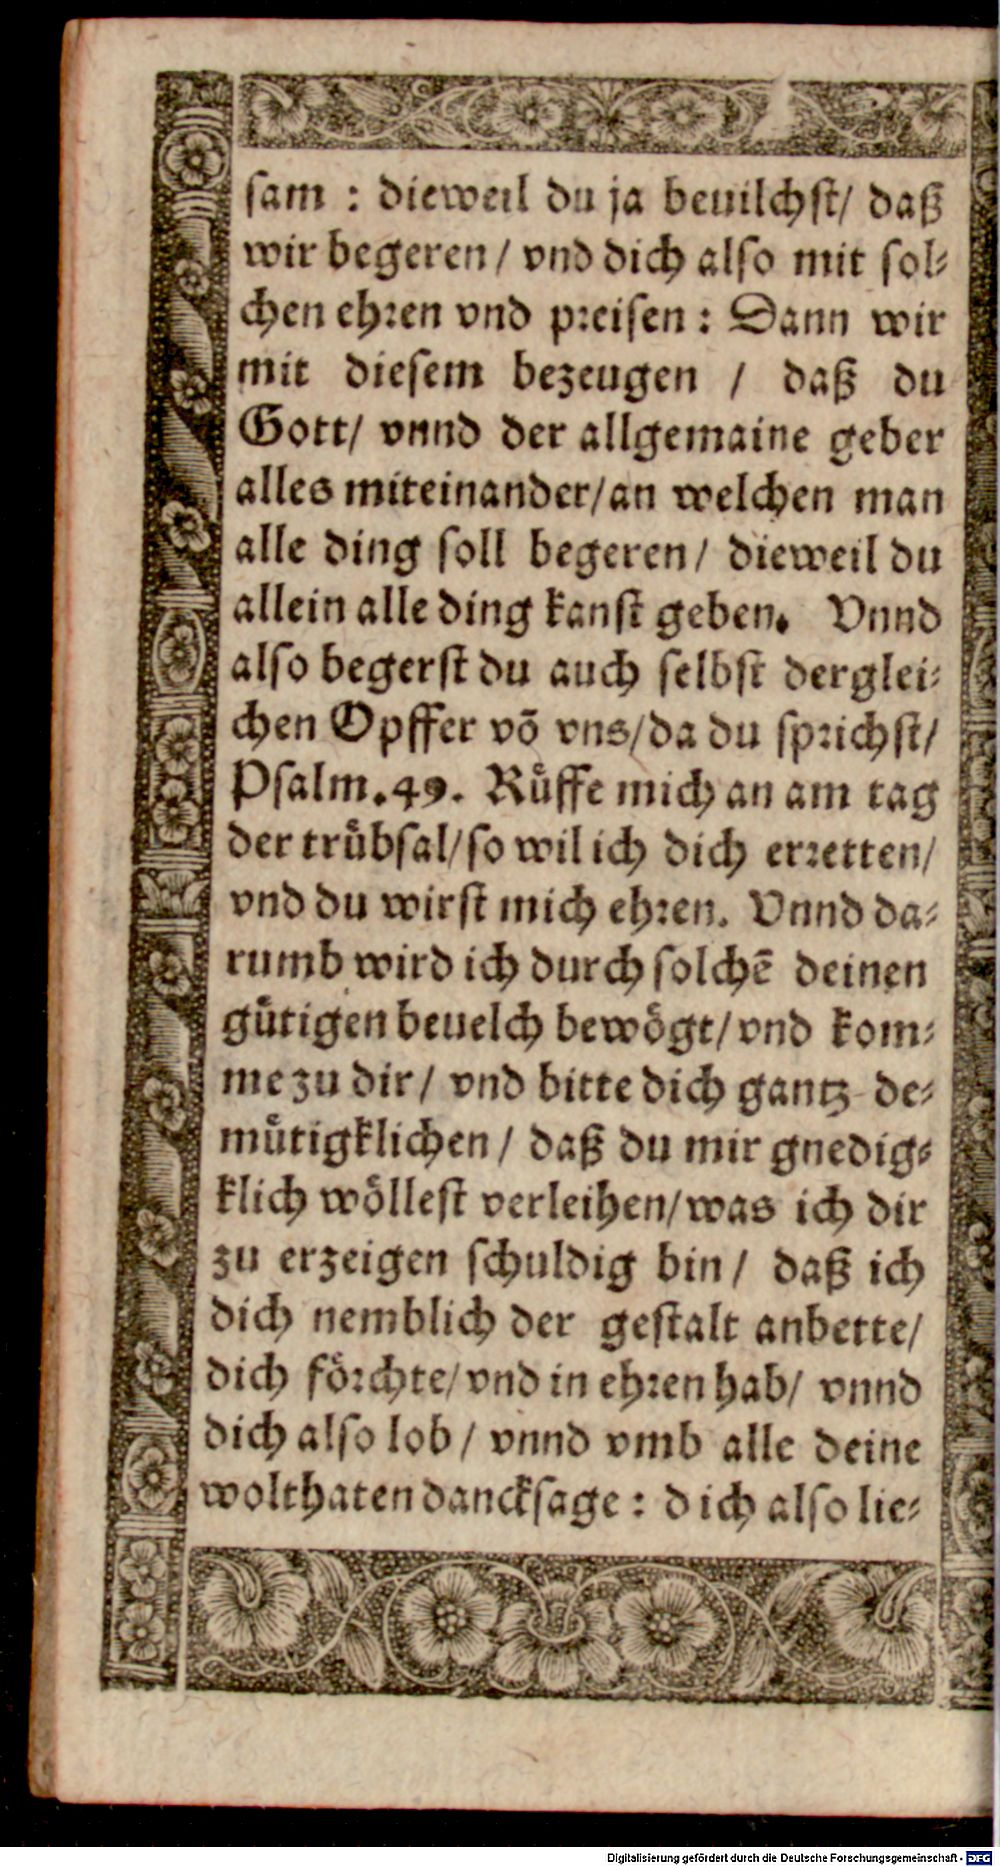 sam : dieweil du ja beuilchst/ daß
wir begeren / vnd dich also mit sol⸗
chen ehꝛen vnd pꝛeisen : Dann wir
mit diesem bezeugen / daß du
Gott/ vnnd der allgemaine geber
alles miteinander/an welchen man
alle ding soll begeren/ dieweil du
allein alle ding kanst geben. Vnnd
also begerst du auch selbst derglei⸗
chen Opffer võ vns/da du spꝛichst/
Psalm.49. Rüffe mich an am tag
der trübsal/so wil ich dich erꝛetten/
vnd du wirst mich ehꝛen. Vnnd da⸗
rumb wird ich durch solchẽ deinen
gütigen beuelch bewögt/vnd kom⸗
me zu dir/ vnd bitte dich gantz de⸗
mütigklichen/ daß du mir gnedig⸗
klich wöllest verleihen/was ich dir
zu erzeigen schuldig bin/ daß ich
dich nemblich der gestalt anbette/
dich föꝛchte/vnd in ehꝛen hab/ vnnd
dich also lob/ vnnd vmb alle deine
wolthaten dancksage : dich also lie⸗
Digitalisierung gefördert durch die Deutsche Forschungsgemeinschaft - DFG